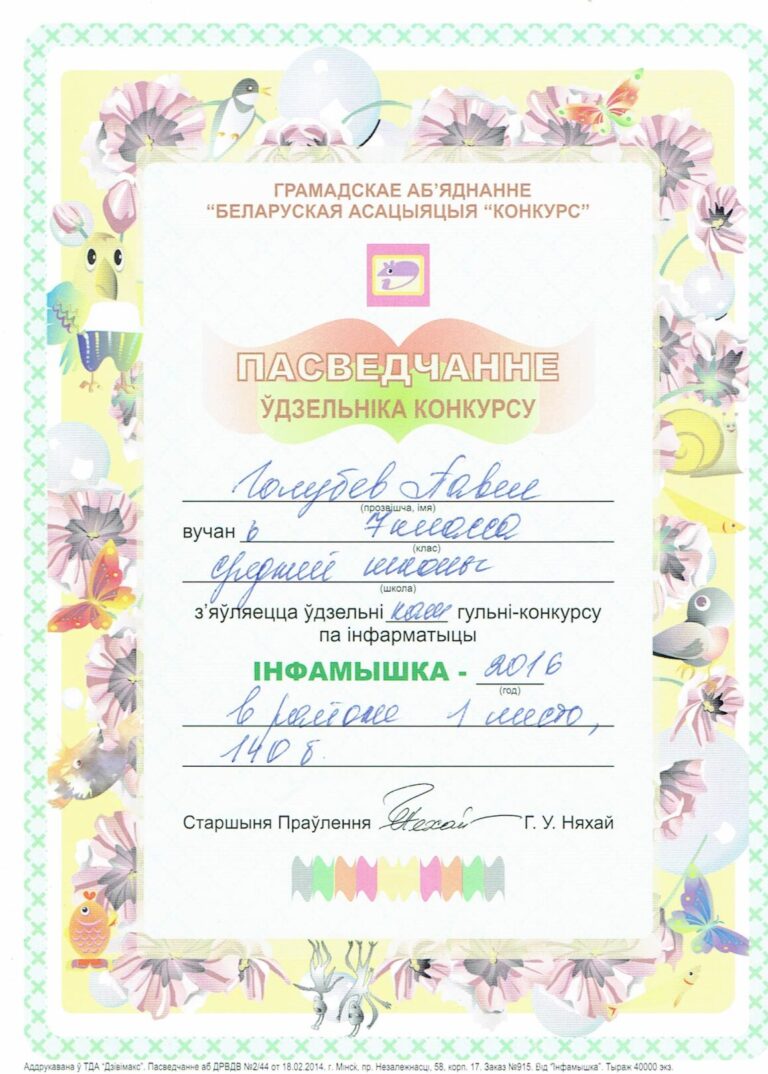 ГРАМАДСКАЕ АБ’ЯДНАННЕ
“БЕЛАРУСКАЯ АСАЦЫЯЦЫЯ “КОНКУРС”
ПАСВЕДЧАННЕ
ЎДЗЕЛЬНІКА КОНКУРСУ
Голубев Павел
(прозвішча, імя)
вучан ь 7 класса
(клас)
средней школы
(школа)
з’яўляецца ўдзельні кам гульні-конкурсу
па інфарматыцы
ІНФАМЫШКА - 2016
(год)
в районе 1 место,
140 б.
Старшыня Праўлення Г. У. Няхай
Аддрукавана ў ТДА “Дзівімакс”. Пасведчанне аб ДРВДВ №2/44 от 18.02.2014. г. Мінск, пр. Незалежнасці, 58, корп. 17. Заказ №915. Від “Інфамышка”. Тыраж 40000 экз.